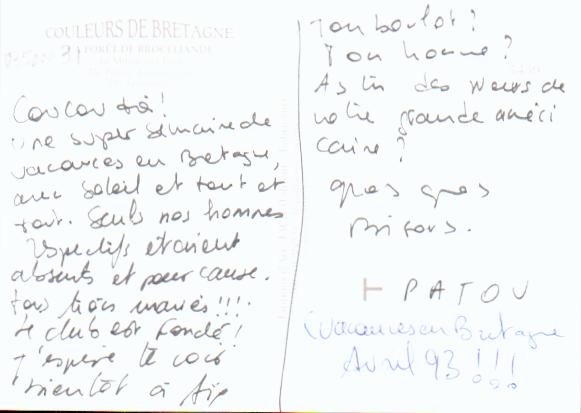 COULEURS DE BRETAGNE
FORÊT DE BROCÉLIANDE
Coucou toi!
Une super semaine de
vacances en Bretagne,
avec soleil et tout et
tout. Seuls nos hommes
respectifs étaient
absents et pour cause.
tous trois mariés!!!
Le club est fondé!
J'espère te voir
bientôt à Aix
Ton boulot?
Ton homme?
As tu des news de
notre grande améri
caine?
gros gros
Bisous.
PATOU
(vacances en Bretagne
Avril 93!!!